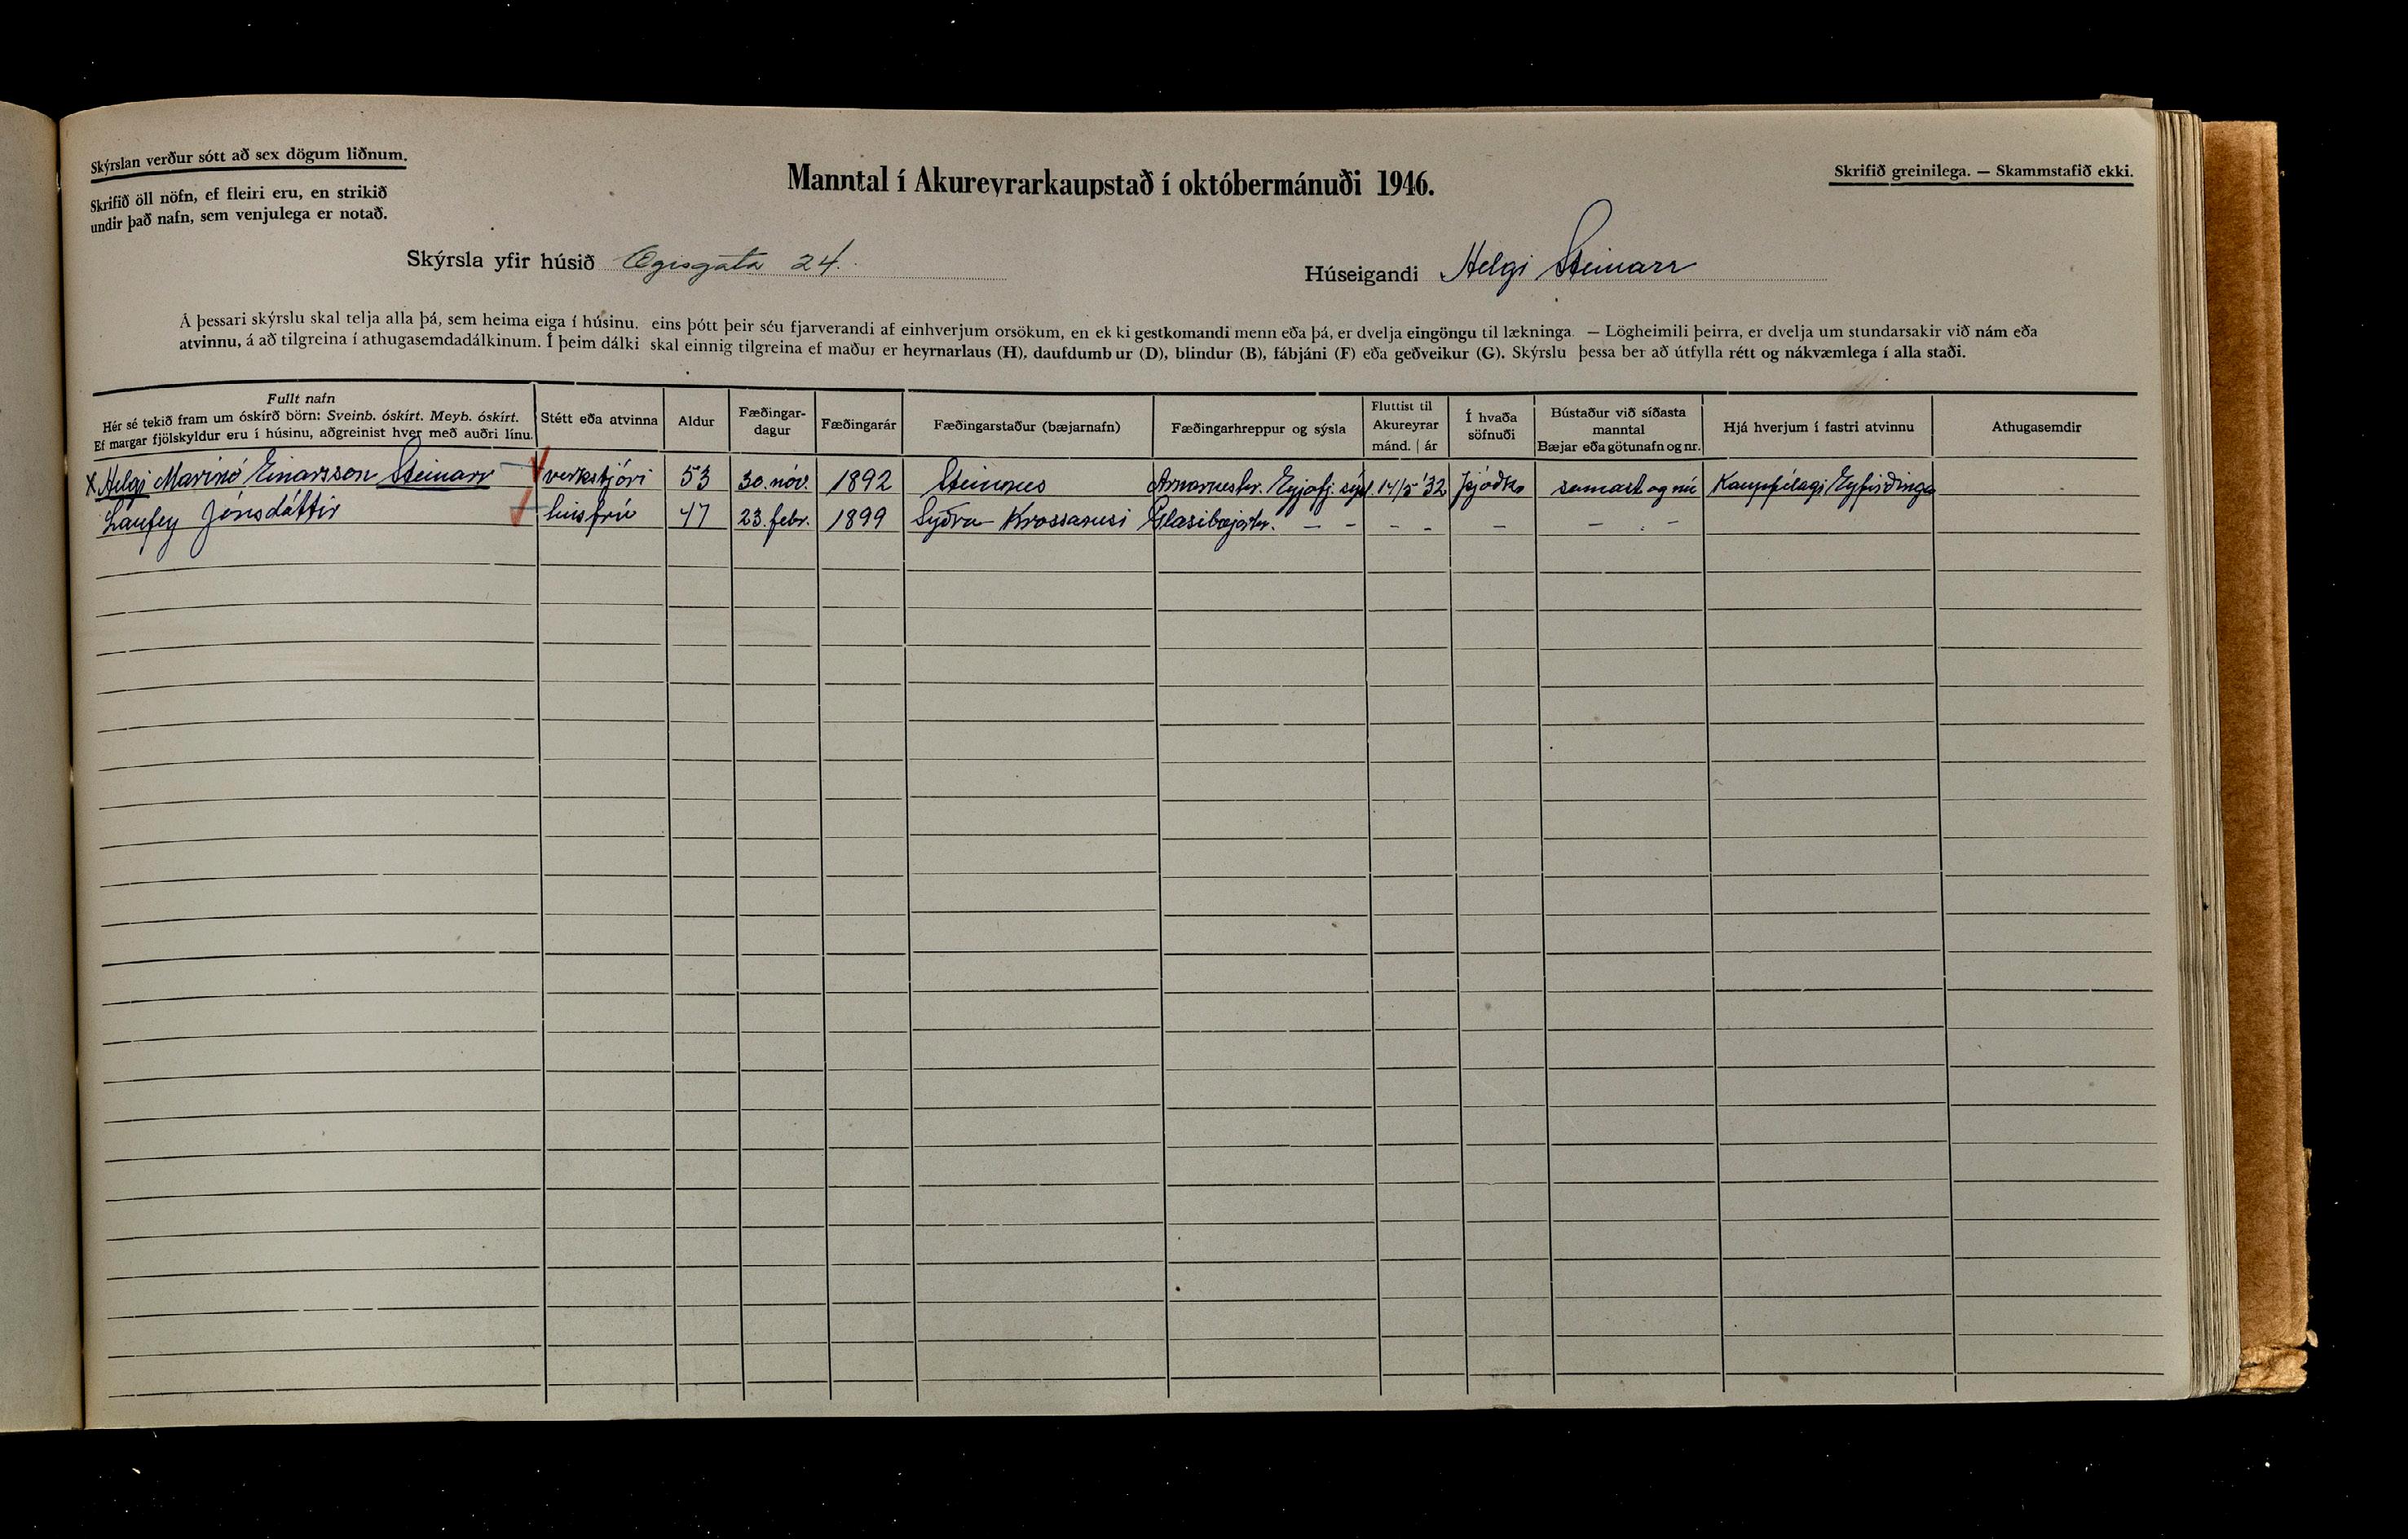 Skýrslan verður sótt að sex dögum liðnum.
Skrifið öll nöfn, ef fleiri eru, en strikið
undir það nafn, sem venjulega er notað.
Manntal í Akureyrarkaupstað í októbermánuði 1946.
Skrifið greinilega. — Skammstafið ekki.
Skýrsla yfir húsið Ægisgata 24.
Húseigandi Helgi Steinarr
Á þessari skýrslu skal telja alla þá, sem heima eiga í húsinu, eins þótt þeir séu fjarverandi af einhverjum orsökum, en ekki gestkomandi menn eða þá, er dvelja eingöngu til lækninga. — Lögheimili þeirra, er dvelja um stundarsakir við nám eða
atvinnu, á að tilgreina í athugasemdadálkinum. Í þeim dálki skal einnig tilgreina ef maður er heyrnarlaus (H), daufdumbur (D), blindur (B), fábjáni (F) eða geðveikur (G). Skýrslu þessa ber að útfylla rétt og nákvæmlega í alla staði.
Fullt nafn
Hér sé tekið fram um óskírð börn: Sveinb. óskírt. Meyb. óskírt.
Ef margar fjölskyldur eru í húsinu, aðgreinist hver með auðri línu.
Stétt eða atvinna
Aldur
Fæðingar-
dagur
Fæðingarár
Fæðingarstaður (bæjarnafn)
Fæðingarhreppur og sýsla
Fluttist til
Akureyrar
mánd. | ár
Í hvaða
söfnuði
Bústaður við síðasta
manntal
Bæjar eða götunafn og nr.
Hjá hverjum í fastri atvinnu
Athugasemdir
x Helgi Marinó Einarsson Steinarr — verkstjóri 53 30. nóv. 1892 Steinnes Arnarneshr. Eyjafj. sýsl 14/5 '32 Þjóðk. samast. og nú Kaupfélagi Eyfirðinga
Laufey Jónsdóttir — húsfrú 47 23. febr. 1899 Syðra-Krossanesi Glæsibæjarhr. — — — — — — —